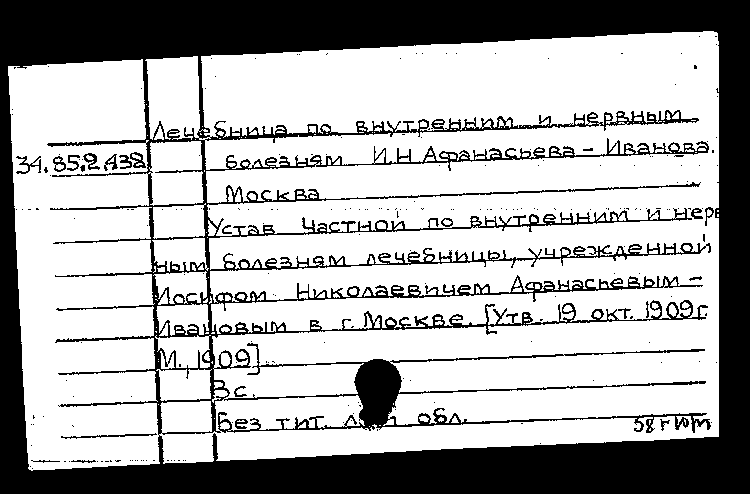 Лечебница по внутренним и нервным
34.85.2.438 болезням И.Н Афанасьева – Иванова.
Москва
Устав частной по внутренним и нерв
ным болезням лечебницы, учрежденной
Иосифом Николаевичем Афанасьевым –
Ивановым в г. Москве. [Утв. 19 окт. 1909 г.
М., 1909]
3 с.
Без тит. л. и обл.
58 г